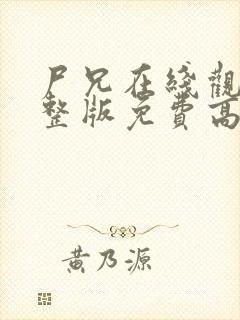 尸兄在綫觀
整版免費高
黄乃源